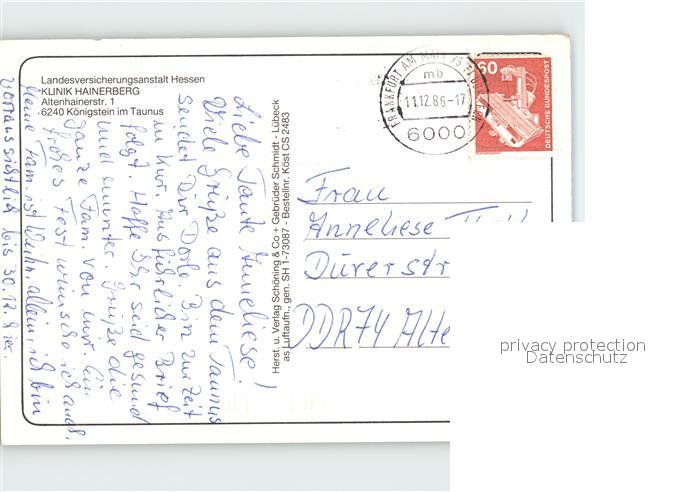 Landesversicherungsanstalt Hessen
KLINIK HAINERBERG
Altenhainerstr. 1
6240 Königstein im Taunus
Liebe Tante Anneliese!
Viele Grüße aus dem Taunus
sendet Dir Dorle. Bin zur Zeit
in Kur. Ausführlicher Brief
folgt. Hoffe Ihr seid gesund
und munter. Grüße die
ganze Fam. von mir. Ein
frohes Fest wünsche ich auch.
Meine Fam. ist Weihn. allein, ich bin
voraussichtlich bis 30.12. hier.
Herst. u. Verlag Schöning & Co + Gebrüder Schmidt - Lübeck
as Luftaufn., gen. SH 1-73087 - Bestellnr. Köst CS 2483
FRANKFURT AM MAIN 75
mb
11.12.86-17
6000
60
DEUTSCHE BUNDESPOST
Frau
Anneliese
Dürerstr
DDR 74 Alte
privacy protection
Datenschutz